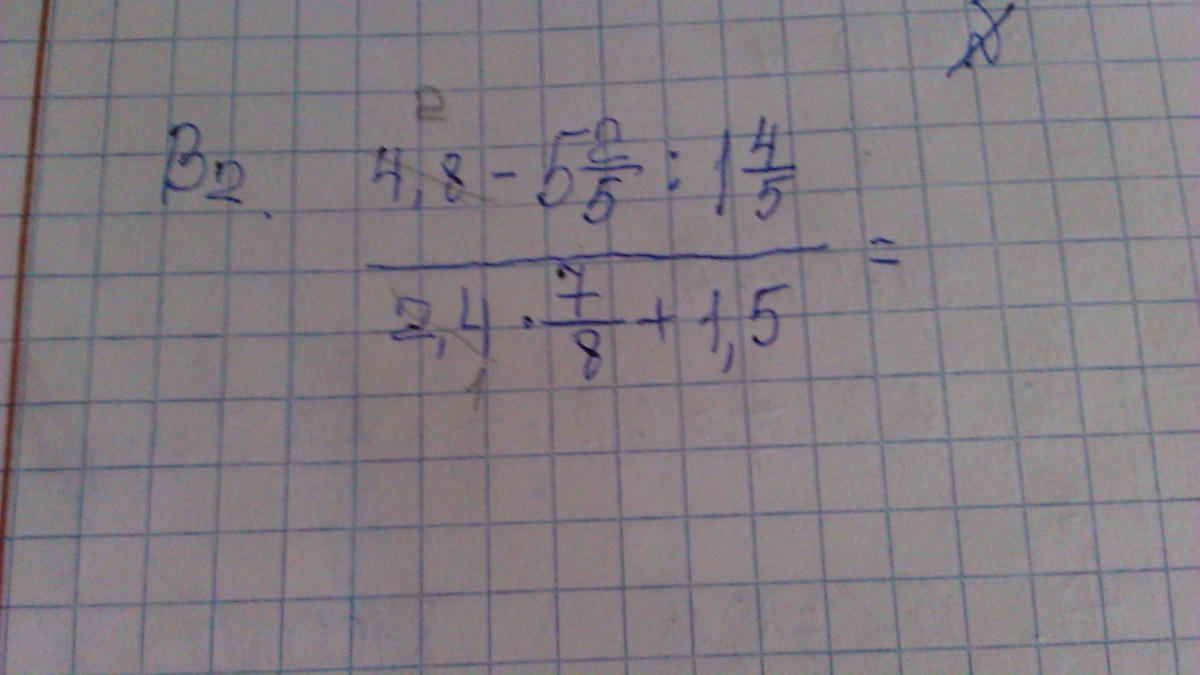 2
В2. 4,8 - 5 2/5 : 1 4/5
2,4 · 7/8 + 1,5 =
1